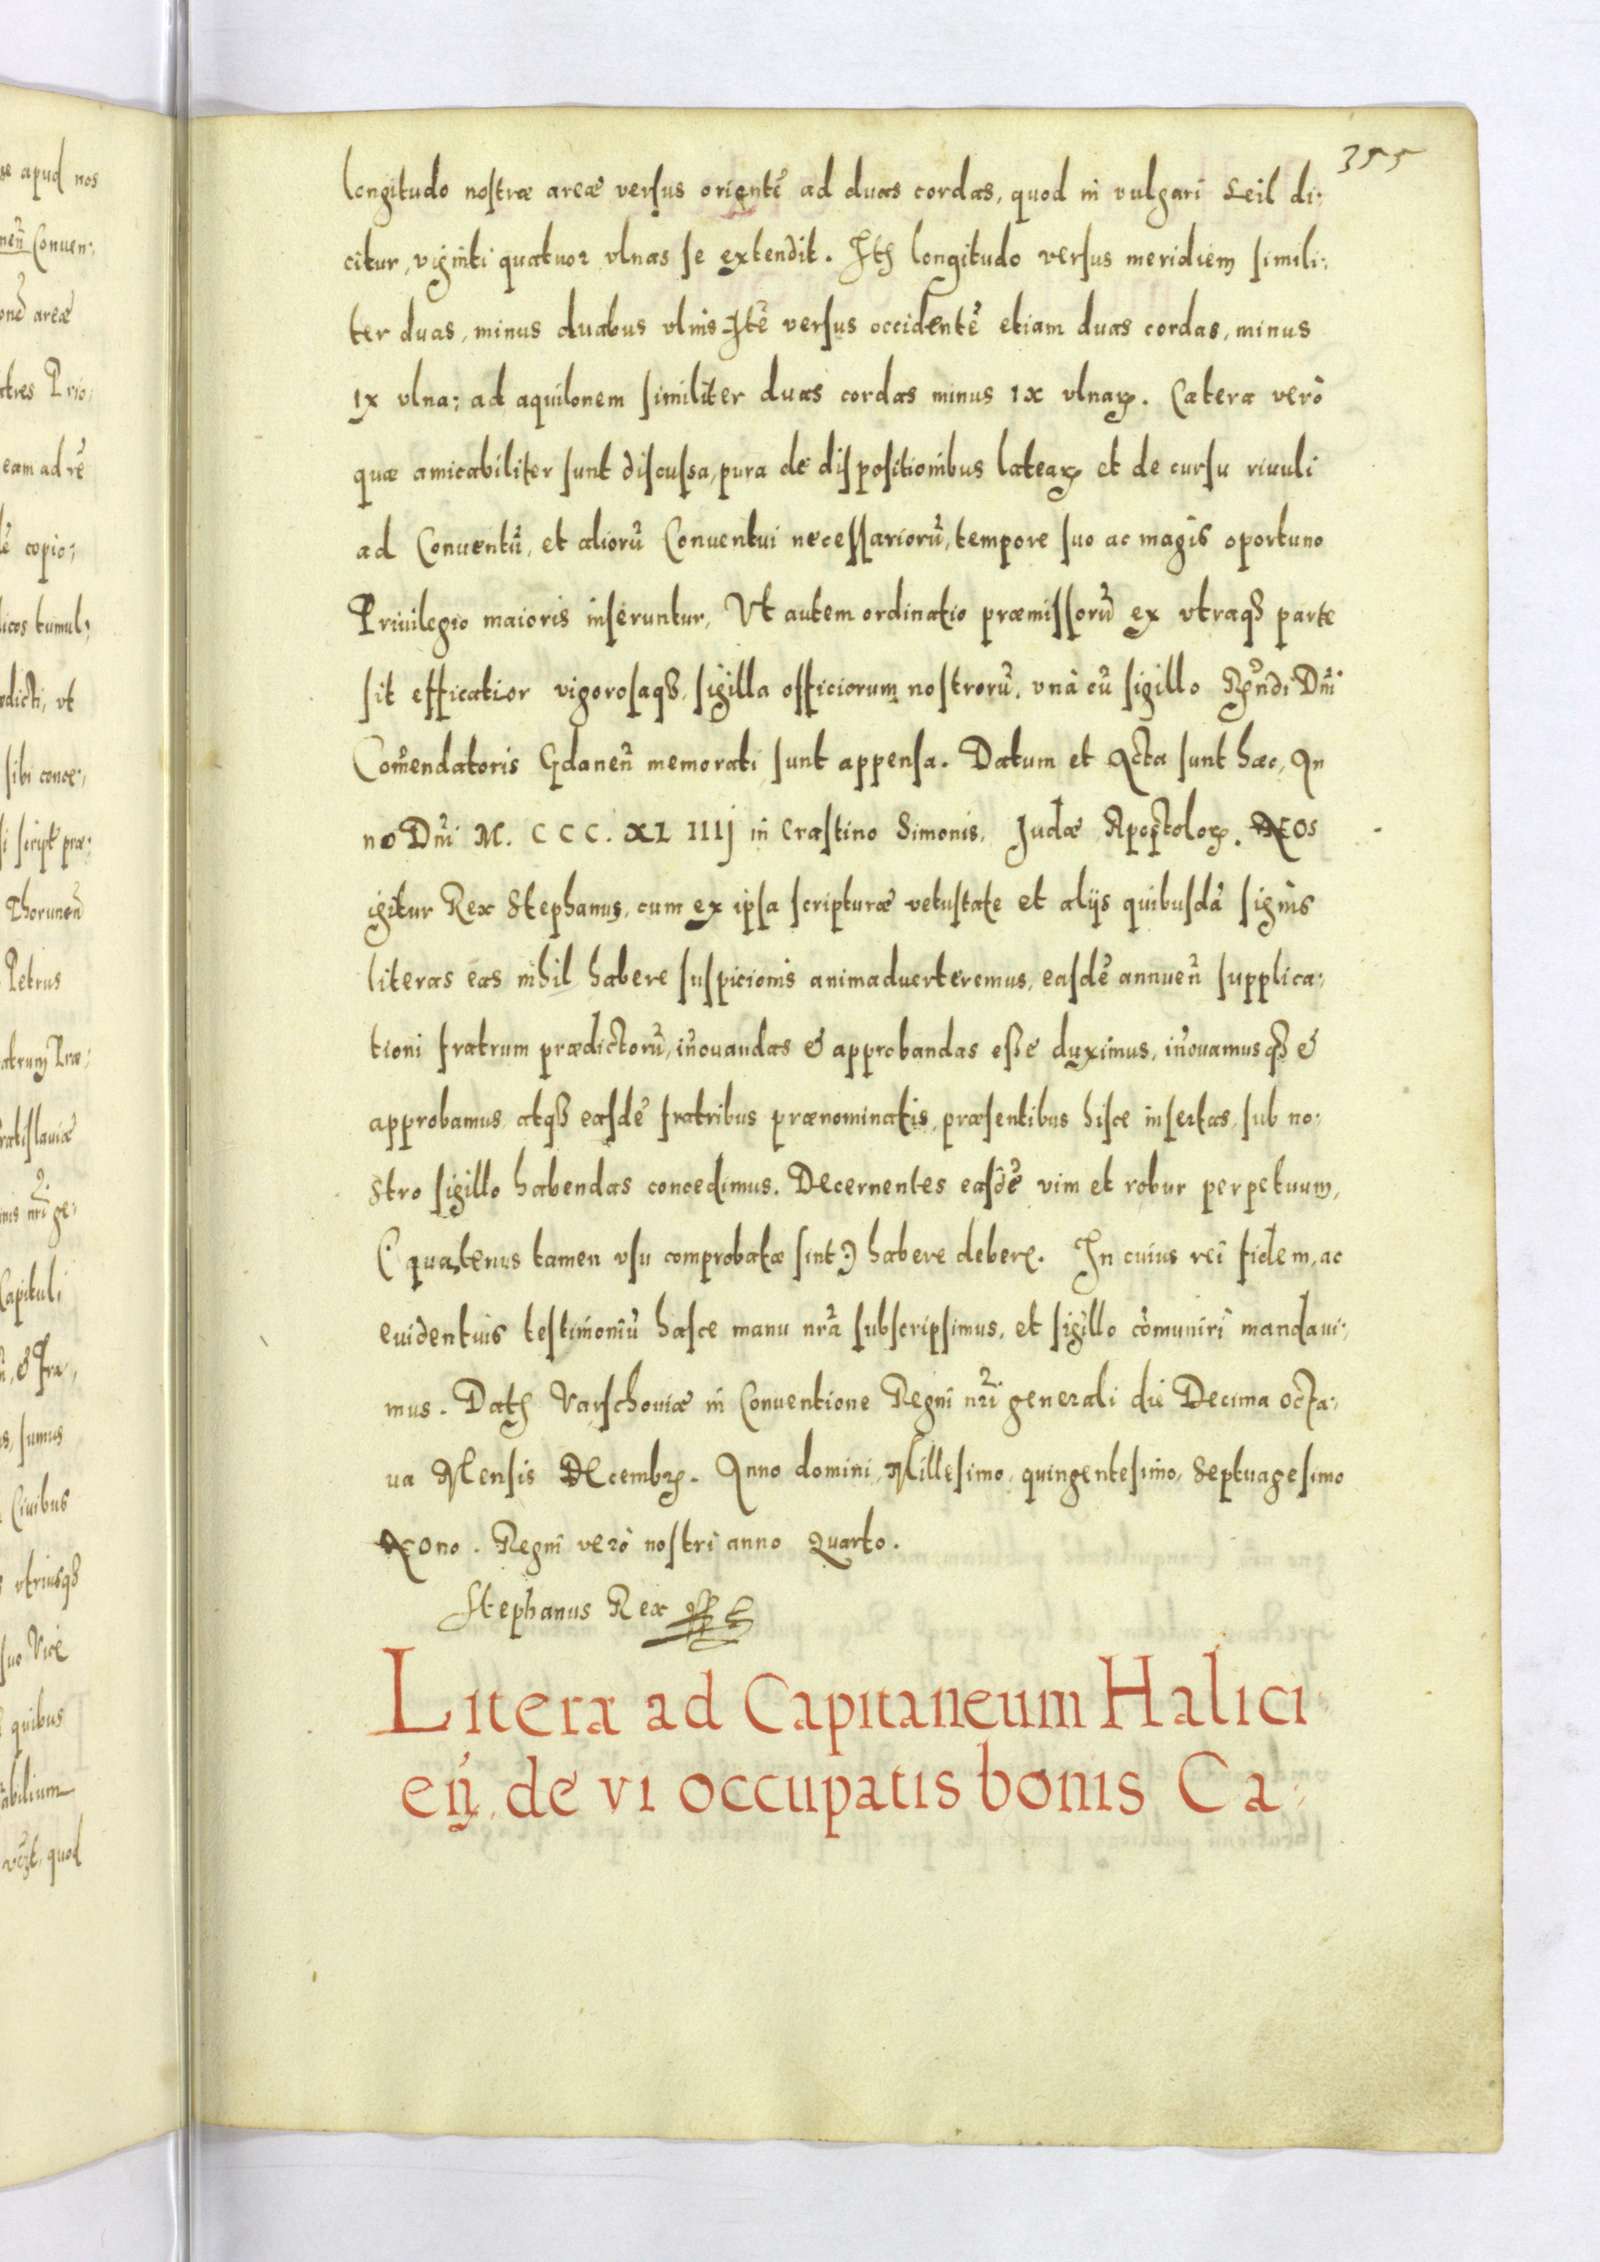 355
longitudo nostræ areæ versus orientē ad duas cordas, quod in vulgari Seil di:
citur, viginti quatuor vlnas se extendit. Itȝ longitudo versus meridiem simili:
ter duas, minus duabus vlnis Itē versus occidentē etiam duas cordas, minus
IX vlna: ad aquilonem similiter duas cordas minus IX vlnaꝝ. Cætera verò
quæ amicabiliter sunt discussa, pura de dispositionibus lateaꝝ et de cursu riuuli
ad Conuentū, et aliorū Conuentui necessariorū, tempore suo ac magis oportuno
Priuilegio maioris inseruntur, Vt autem ordinatio præmissorū ex vtraqȝ parte
sit efficatior vigorosaqȝ, sigilla officiorum nostrorū, vnà cū sigillo Rṽndi Dn̄i
Com̄endatoris Gdanen̄ memorati sunt appensa. Datum et Acta sunt hæc, An
no Dn̄i M. CCC. XL IIIj in Crastino Simonis, Judæ Apostoloꝝ. Nos
igitur Rex Stephanus, cum ex ipsa scripturæ vetustate et alijs quibusdā signis
literas eas nihil habere suspicionis animaduerteremus, easdē annuen̄ supplica:
tioni fratrum prædictorū, in̄ouandas & approbandas esse duximus, in̄ouamusqȝ &
approbamus atqȝ easdē fratribus prænominatis, præsentibus hisce insertas, sub no:
stro sigillo habendas concedimus. Decernentes easdē vim et robur perpetuum,
(: quatenus tamen vsu comprobatæ sint :) habere debere. In cuius rei fidem, ac
euidentuis testimoniū hasce manu nr̄a subscripsimus, et sigillo cōmuniri mandaui:
mus. Datȝ Varschouiæ in Conuentione Regni nr̄i generali die Decima octa:
ua Mensis Decembꝝ. Anno domini, Millesimo, quingentesimo, Septuagesimo
Nono. Regni verò nostri anno Quarto.
Stephanus Rex
Litera ad Capitaneum Halici
en̄, de vi occupatis bonis Ca: